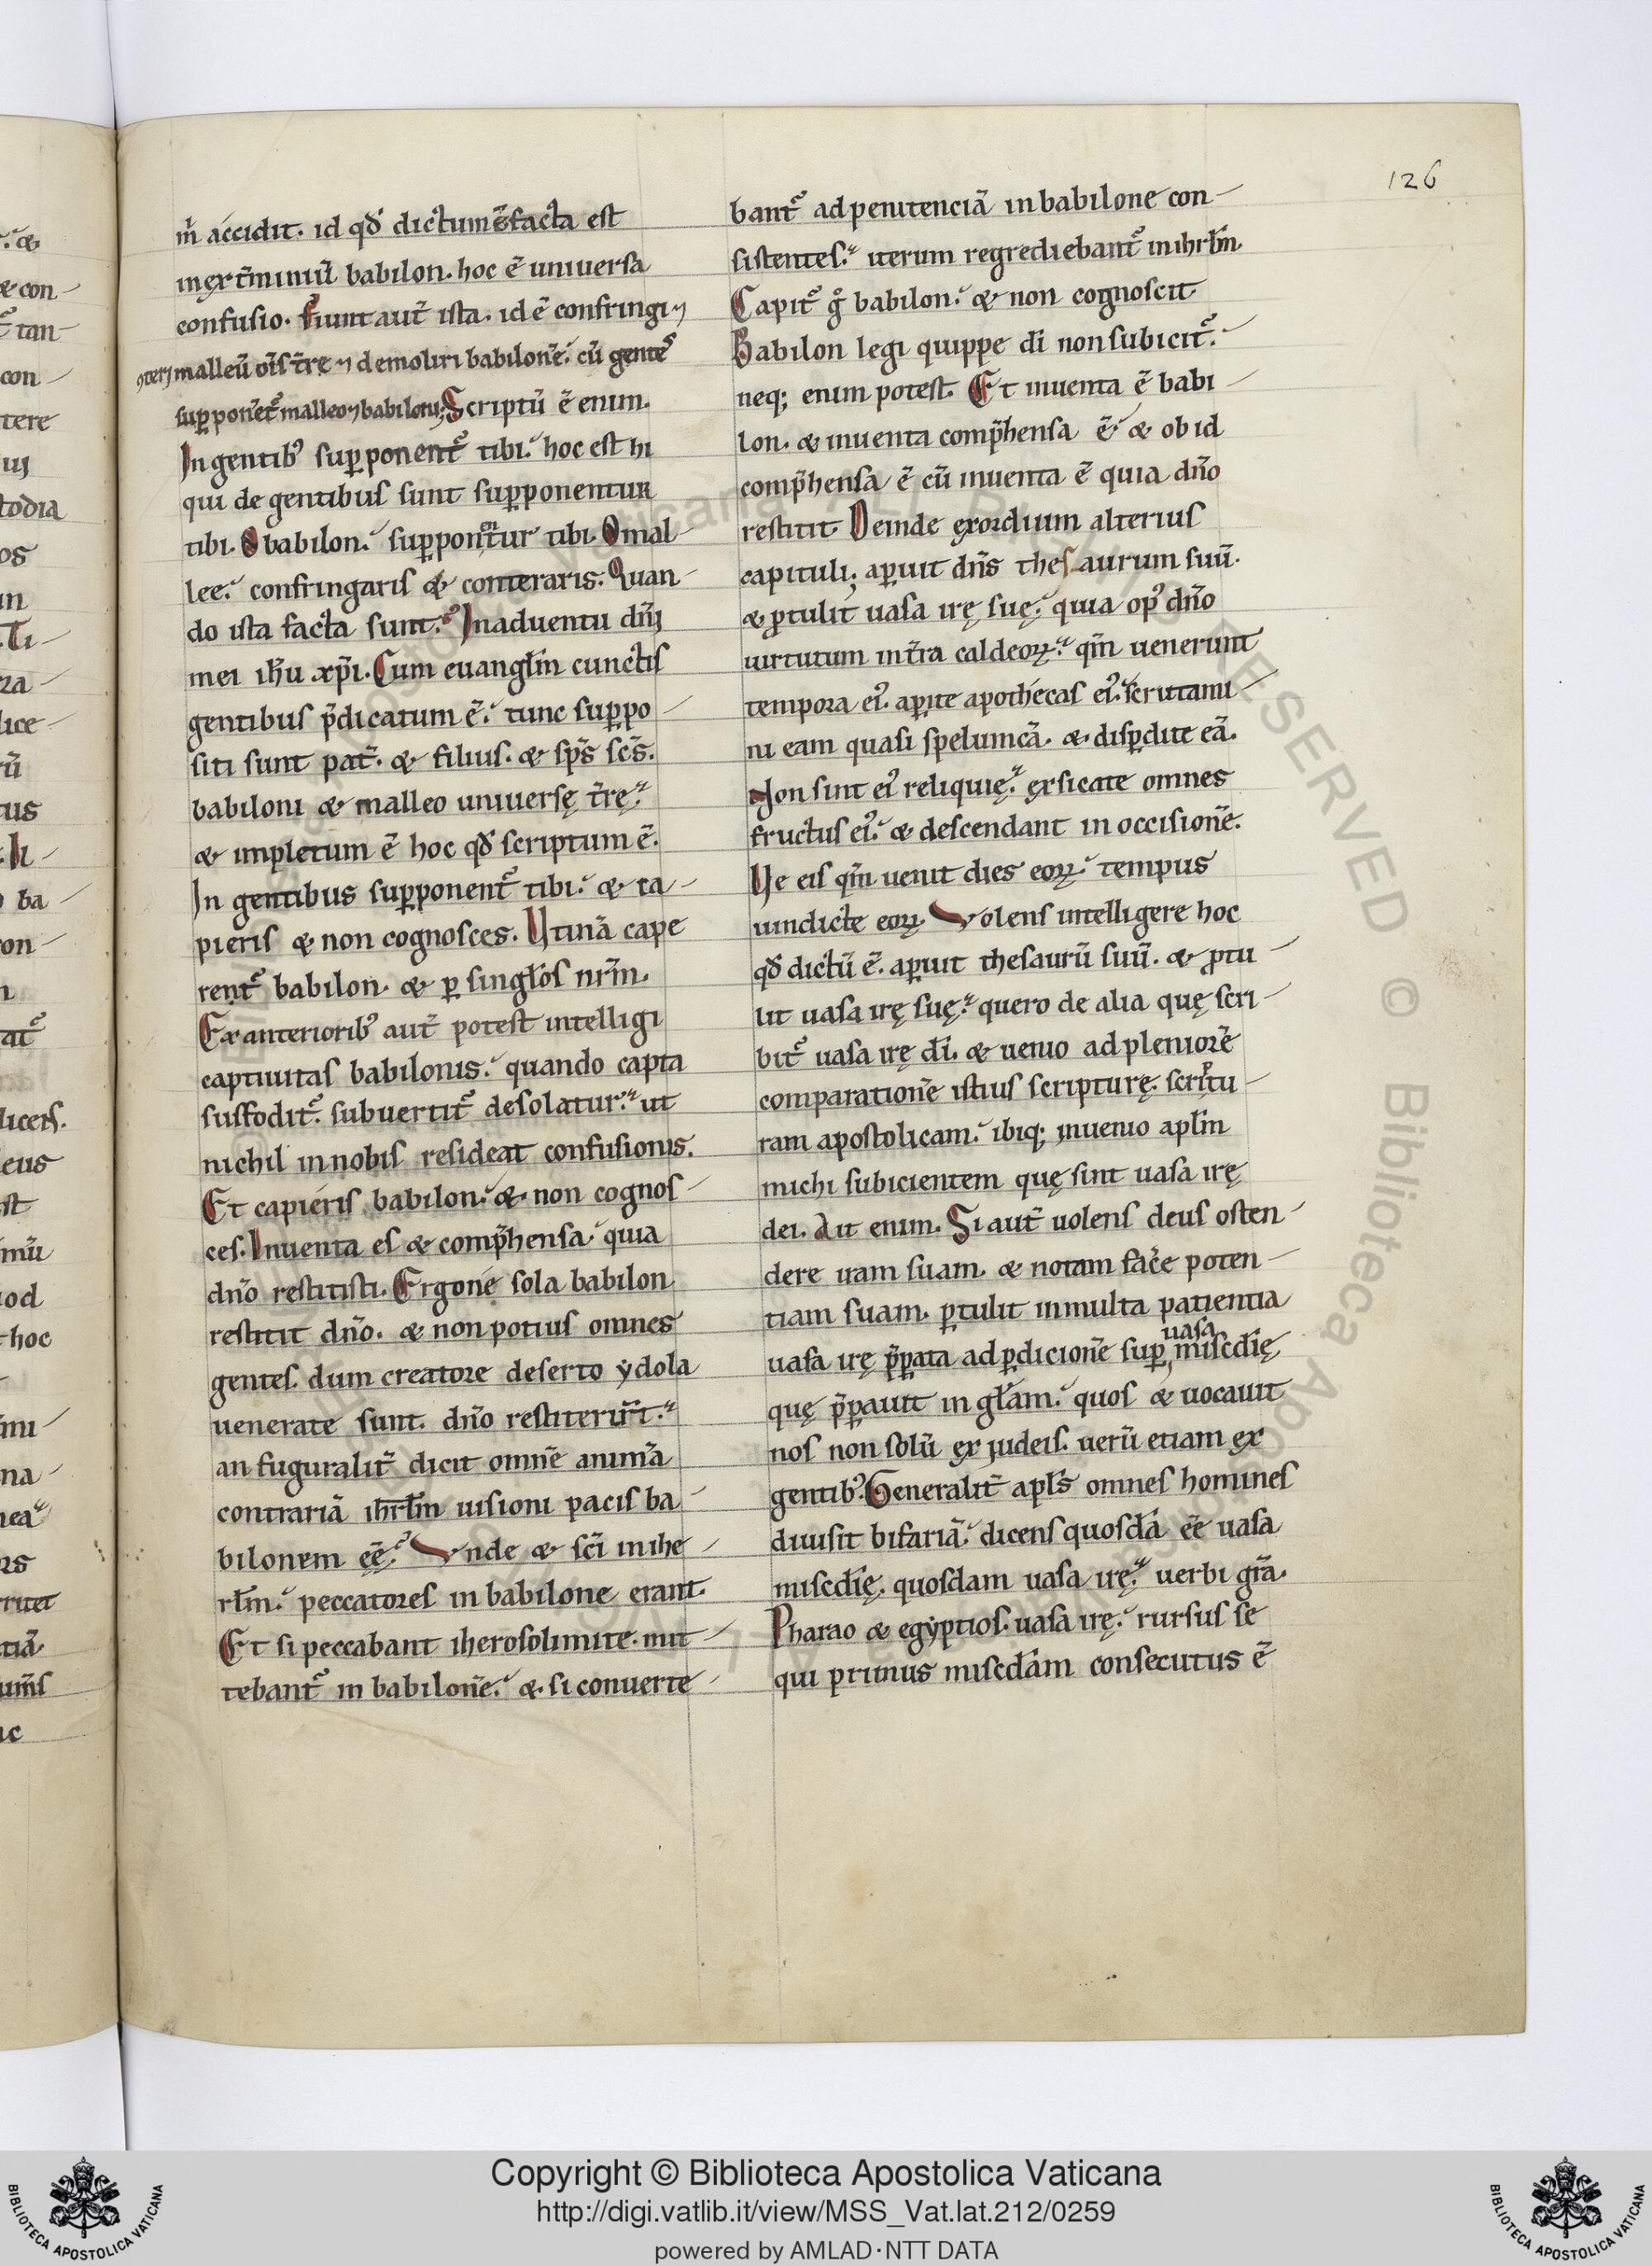 126
m̄ accidit. id qd̄ dictum ē facta est
in ext̄miniū babilon. hoc ē uniuersa
confusio. Fiunt aut̄ ista. id ē confringi ⁊
ꝯteri malleū oīs t̄re ⁊ demoliri babilonē. cū gentes
suppoñet᷑ malleo ⁊ babiloni. Scriptū ē enim.
In gentib᷒ supponent᷑ tibi. hoc est hi
qui de gentibus sunt supponentur
tibi. O babilon. suppontur tibi. O mal-
lee. confringaris & conteraris. Quan-
do ista facta sunt. In aduentu dn̄i
mei ih̄u xp̄i. Cum euangl̄m cunctis
gentibus p̄dicatum ē. tunc suppo-
siti sunt pat̄. & filius. & sp̄s sc̄s.
babiloni & malleo uniuersę t̄rę.
& impletum ē hoc qd̄ scriptum ē.
In gentibus supponent᷑ tibi. & ca-
pieris & non cognosces. Utinā cape
rent᷑ babilon. & ꝑ singl̄os nr̄m.
Ex anteriorib᷒ aut̄ potest intelligi
captiuitas babilonis. quando capta
suffodit᷑. subuertit᷑ desolatur. ut
nichil in nobis resideat confusionis.
Et capieris babilon. & non cognos-
ces. Inuenta es & comp̄hensa. quia
dn̄o restitisti. Ergone sola babilon
restitit dn̄o. & non potius omnes
gentes. dum creatore deserto ydola
uenerate sunt. dn̄o restiterūt.
an fuguralit̄ dicit omnē animā
contrariā ihrl̄m uisioni pacis ba-
bilonem eē. Unde & sc̄i in ihe-
rl̄m. peccatores in babilone erant.
Et si peccabant iherosolimite. mit-
tebant᷑ in babilonē. & si conuerte-
bant᷑ ad penitenciā in babilone con-
sistentes. iterum regrediebant᷑ in ihrl̄m.
Capit᷑ g̊ babilon. & non cognoscit
Babilon legi quippe dī non subicit᷑.
neq; enim potest. Et inuenta ē babi-
lon. & inuenta comp̄hensa ē. & ob id
comp̄hensa ē cū inuenta ē quia dn̄o
restitit. Deinde exordium alterius
capituli; aꝑuit dn̄s thesaurum suū.
& ꝓtulit uasa irę suę. quia op᷒ dn̄o
uirtutum in t̄ra caldeoꝝ. qm̄ uenerunt
tempora ei᷒. aꝑite apothecas ei᷒. scrutami-
ni eam quasi speluncā. & disꝑdite eā.
Non sint ei᷒ reliquię. exsicate omnes
fructus ei᷒. & descendant in occisionē.
Ve eis qm̄ uenit dies eoꝝ. tempus
uindicte eoꝝ. Volens intelligere hoc
qd̄ dictū ē. aꝑuit thesaurū suū. & ꝓtu-
lit uasa irę suę. quero de alia quę scri-
bit᷑ uasa irę dī. & uenio ad pleniorē
comparationē istius scripturę. scriptu-
ram apostolicam. ibiq; inuenio apl̄m
michi subicientem quę sint uasa irę
dei. Ait enim. Si aut̄ uolens deus osten-
dere iram suam. & notam fac̄e poten-
tiam suam. ꝑtulit in multa patientia
uasa irę p̄ꝑata ad ꝑdicionē suꝑ uasa misc̄dię
quę p̄ꝑauit in gl̄am. quos & uocauit
nos non solū ex judeis. uerū etiam ex
gentib᷒. Generalit̄ apl̄s omnes homines
diuisit bifariā. dicens quosdā eē uasa
misc̄dię. quosdam uasa irę. uerbi grā.
Pharao & egyptios. uasa irę. rursus se
qui primus misc̄dām consecutus ē
Copyright © Biblioteca Apostolica Vaticana
http://digi.vatlib.it/view/MSS_Vat.lat.212/0259
powered by AMLAD·NTT DATA